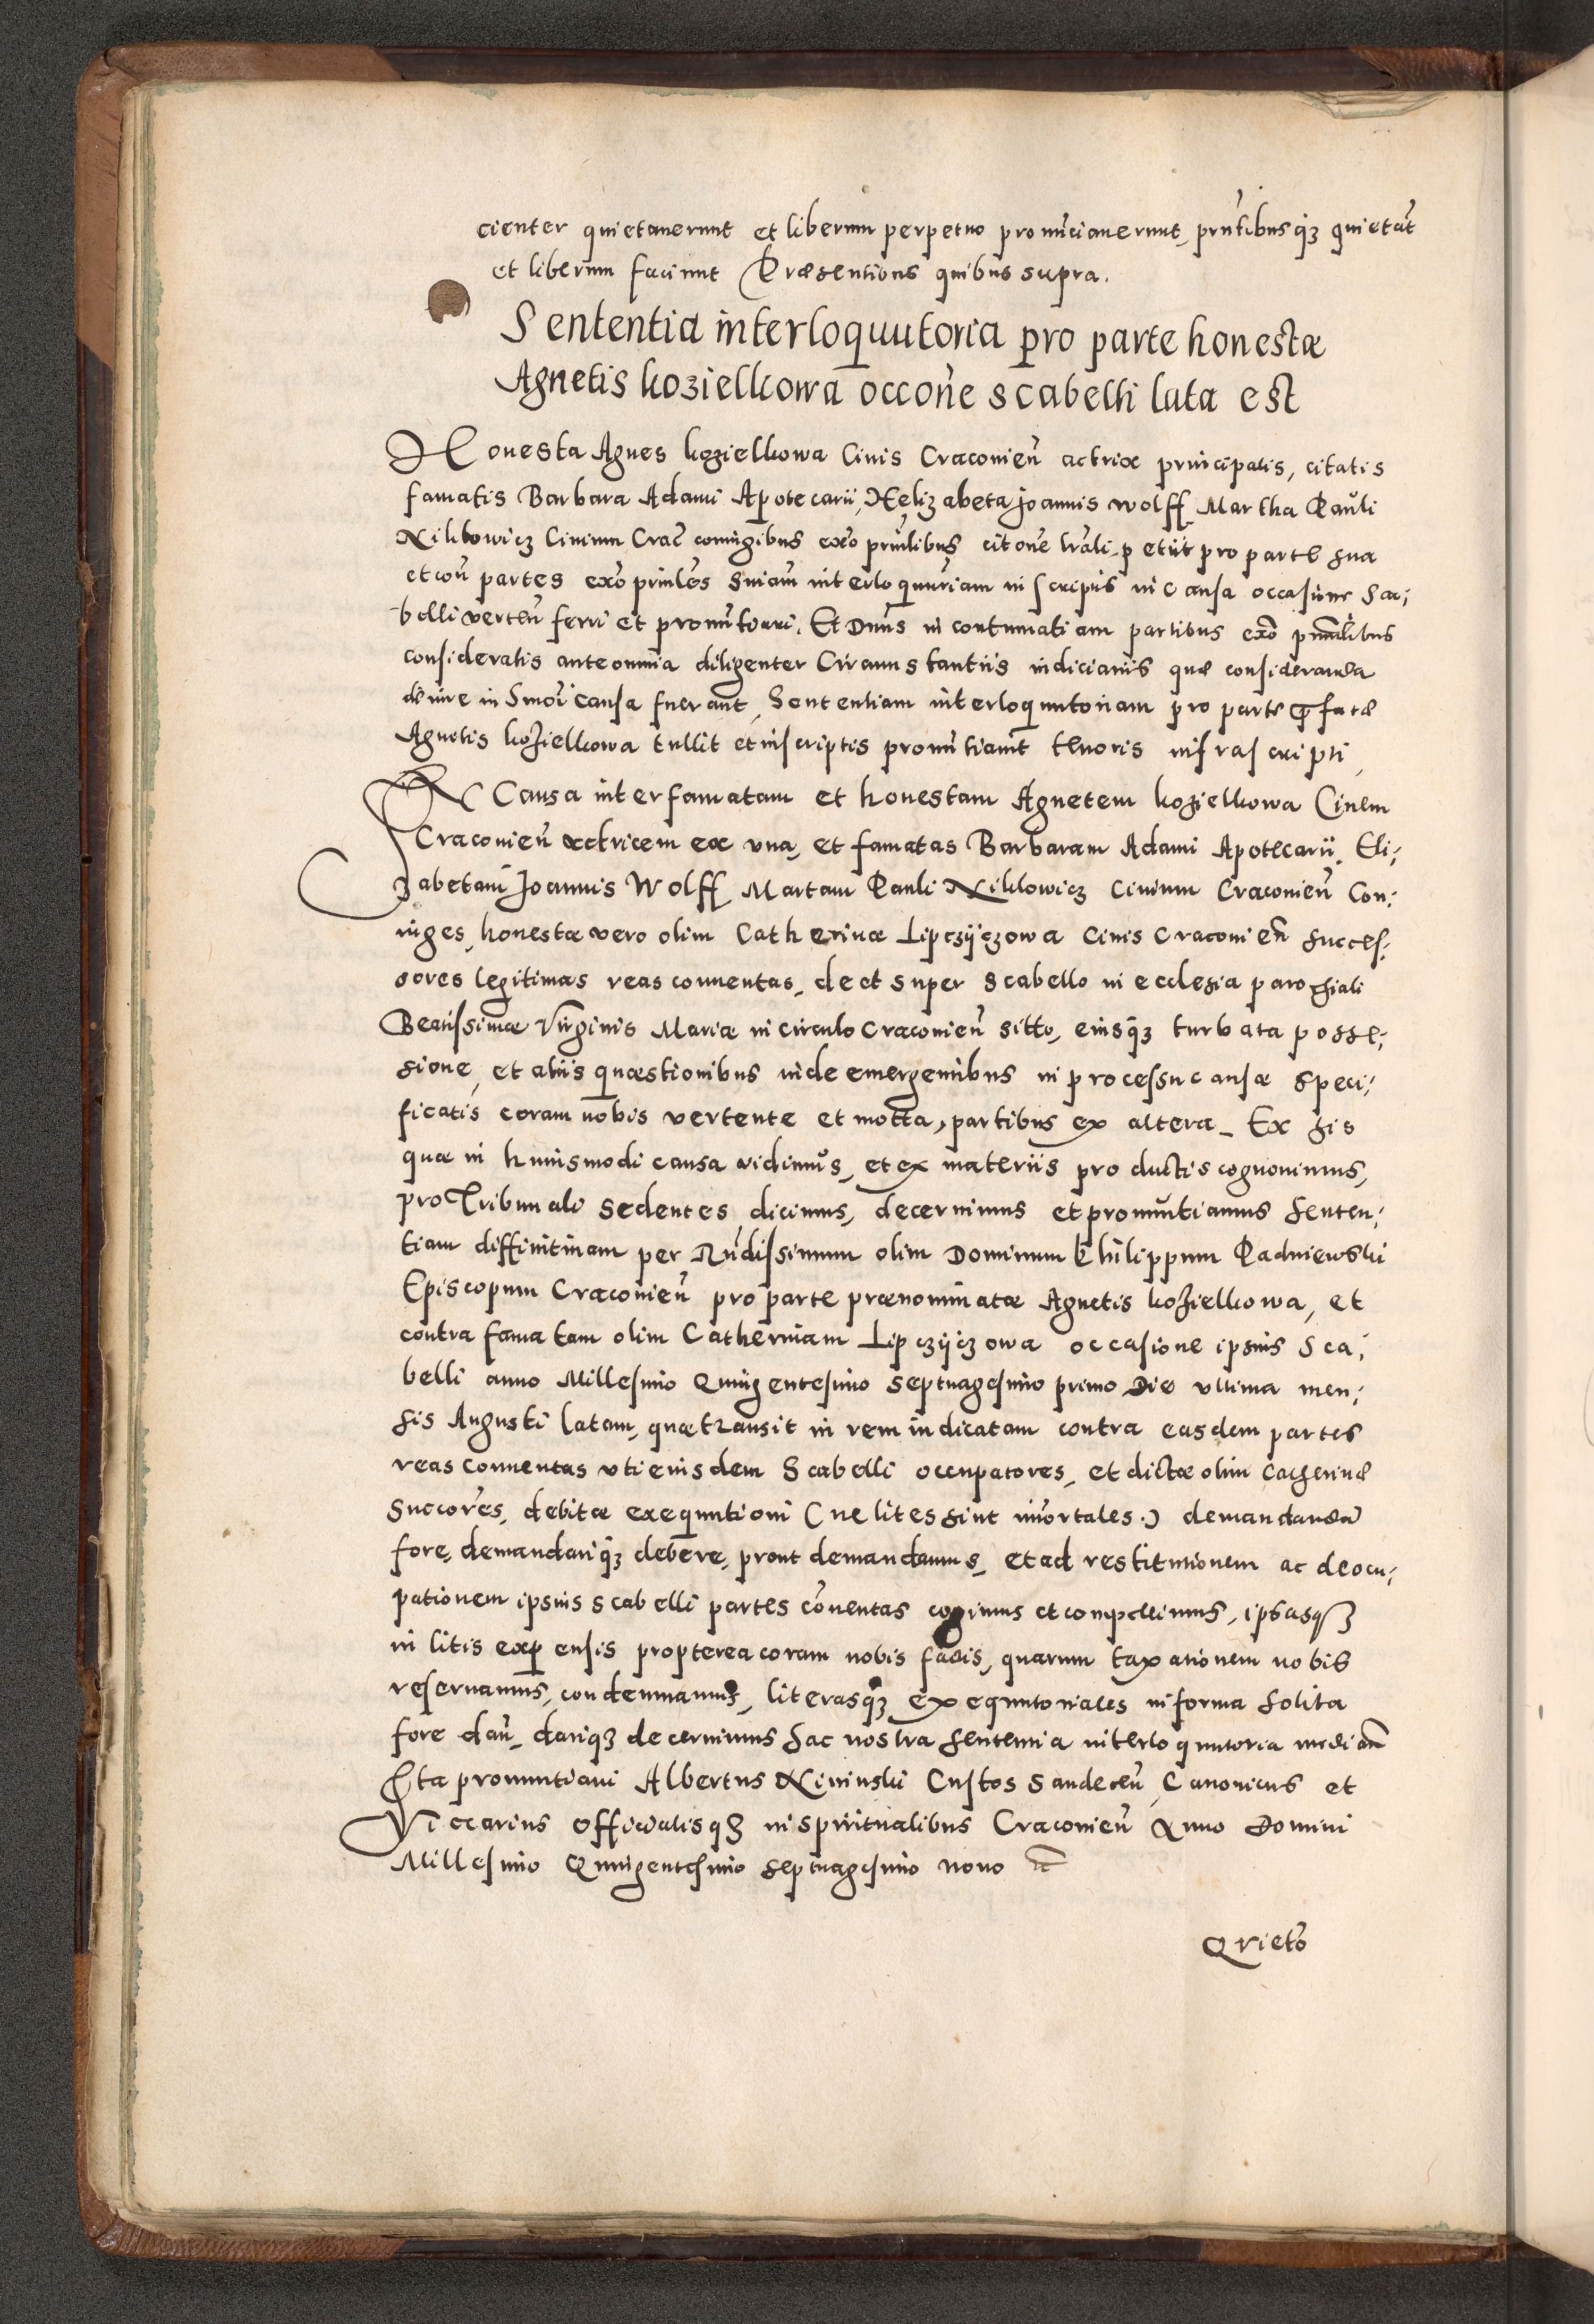 cienter quietaverunt et liberum perpetuo pronunciaverunt, prntibusq3 quietat
et liberum faciunt Præsentibus quibus supra.
Sententia interloquutoria pro parte honestæ
Agnetis koziellkowa occone scabelli lata est
Honesta Agnes koziellkowa Civis Cracovien actrix principalis, citatis
famatis Barbara Adami Apotecarii, Helizabeta Joannis Wolff Martha Pauli
Civium Crac coniugibus exo prnlibus citone lrali petiit pro parte sua
et con partes exo prinles sniam interloquutriam in scriptis in causa occasione Sca¡
belli verten ferri et pronuntiari. Et Dnus in contumatiam partibus exo prnalibus
consideratis ante omnia diligenter Circumstantiis iudiciariis quæ consideranda
de iure in Smoi causa fuerant, Sententiam interloquutoriam pro parte præfatæ
Agnetis koziellkowa tullit et in scriptis pronuntiavit tenoris infrascripti
IN Causa inter famatam et honestam Agnetem koziellkowa Civem
Cracovien actricem ex una, et famatas Barbaram Adami Apotecarii, Eli¡
zabetam Joannis Wolff Martam Pauli Civium Cracovien Con¡
iuges, honestæ vero olim Catherinæ Lipczyczowa Civis Cracovien succes¡
sores legitimas reas conventas, de et super scabello in ecclesia parochiali
Beatissimæ Virginis Mariæ in circulo Cracovien sitto, eiusq3 turbata posse¡
sione, et aliis quæstionibus inde emergentibus in processu causæ speci¡
ficatis coram nobis vertente et motta, partibus ex altera. Ex his
quæ in huiusmodi causa vidimus, et ex materiis productis cognovimus,
pro Tribunali sedentes dicimus, decernimus et pronuntiamus senten¡
tiam diffinitivam per Rndissimum olim Dominum Philippum Padniewski
Episcopum Cracovien pro parte prænominatæ Agnetis koziellkowa, et
contra famatam olim Catherinam Lipczyczowa occasione ipsius Sca¡
belli anno Millesimo Quingentesimo Septuagesimo primo Die ultima men¡
sis Augusti latam, quæ transit in rem iudicatam contra easdem partes
reas conventas uti eiusdem Scabelli occupatores, et dictæ olim Catherinæ
Succores, debitæ exequutioni (ne lites sint imortales.) demandandam
fore, demandariq3 debere, prout demandamus, et ad restitutionem ac deocu¡
pationem ipsius scabelli partes conventas cogimus et compellimus, ipsasq3
in litis expensis propterea coram nobis factis, quarum taxationem nobis
reservamus, condemnamus, literasq3 exequutoriales in forma solita
fore dan, dariq3 decernimus hac nostra sententia interloquutoria median
Ita pronuntiavi Albertus Custos Sandecen, Canonicus et
Viccarius Officialisq3 in spiritualibus Cracovien Anno Domini
Millesimo Quingentesimo septuagesimo nono
Qrieto